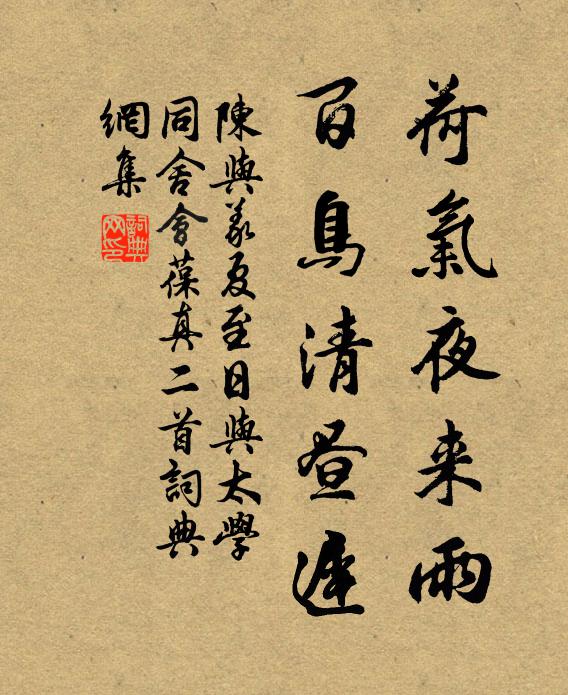 荷氣夜来雨
百鳥清晝遲
陳與義夏至日與太學
同舍會葆真二首詞典
網集
詞典
网印